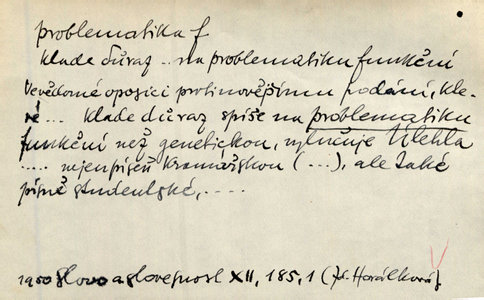 problematika f
klade důraz .. na problematiku funkční
Ve vědomé oposici proti novějšímu podání, kte-
ré ... klade důraz spíše na problematiku
funkční než genetickou, vylučuje Úlehla
.... nejen píseň kramářskou (...), ale také
písně studentské, ....
1950 Slovo a slovesnost XII, 185, 1 (Zd. Horálková)